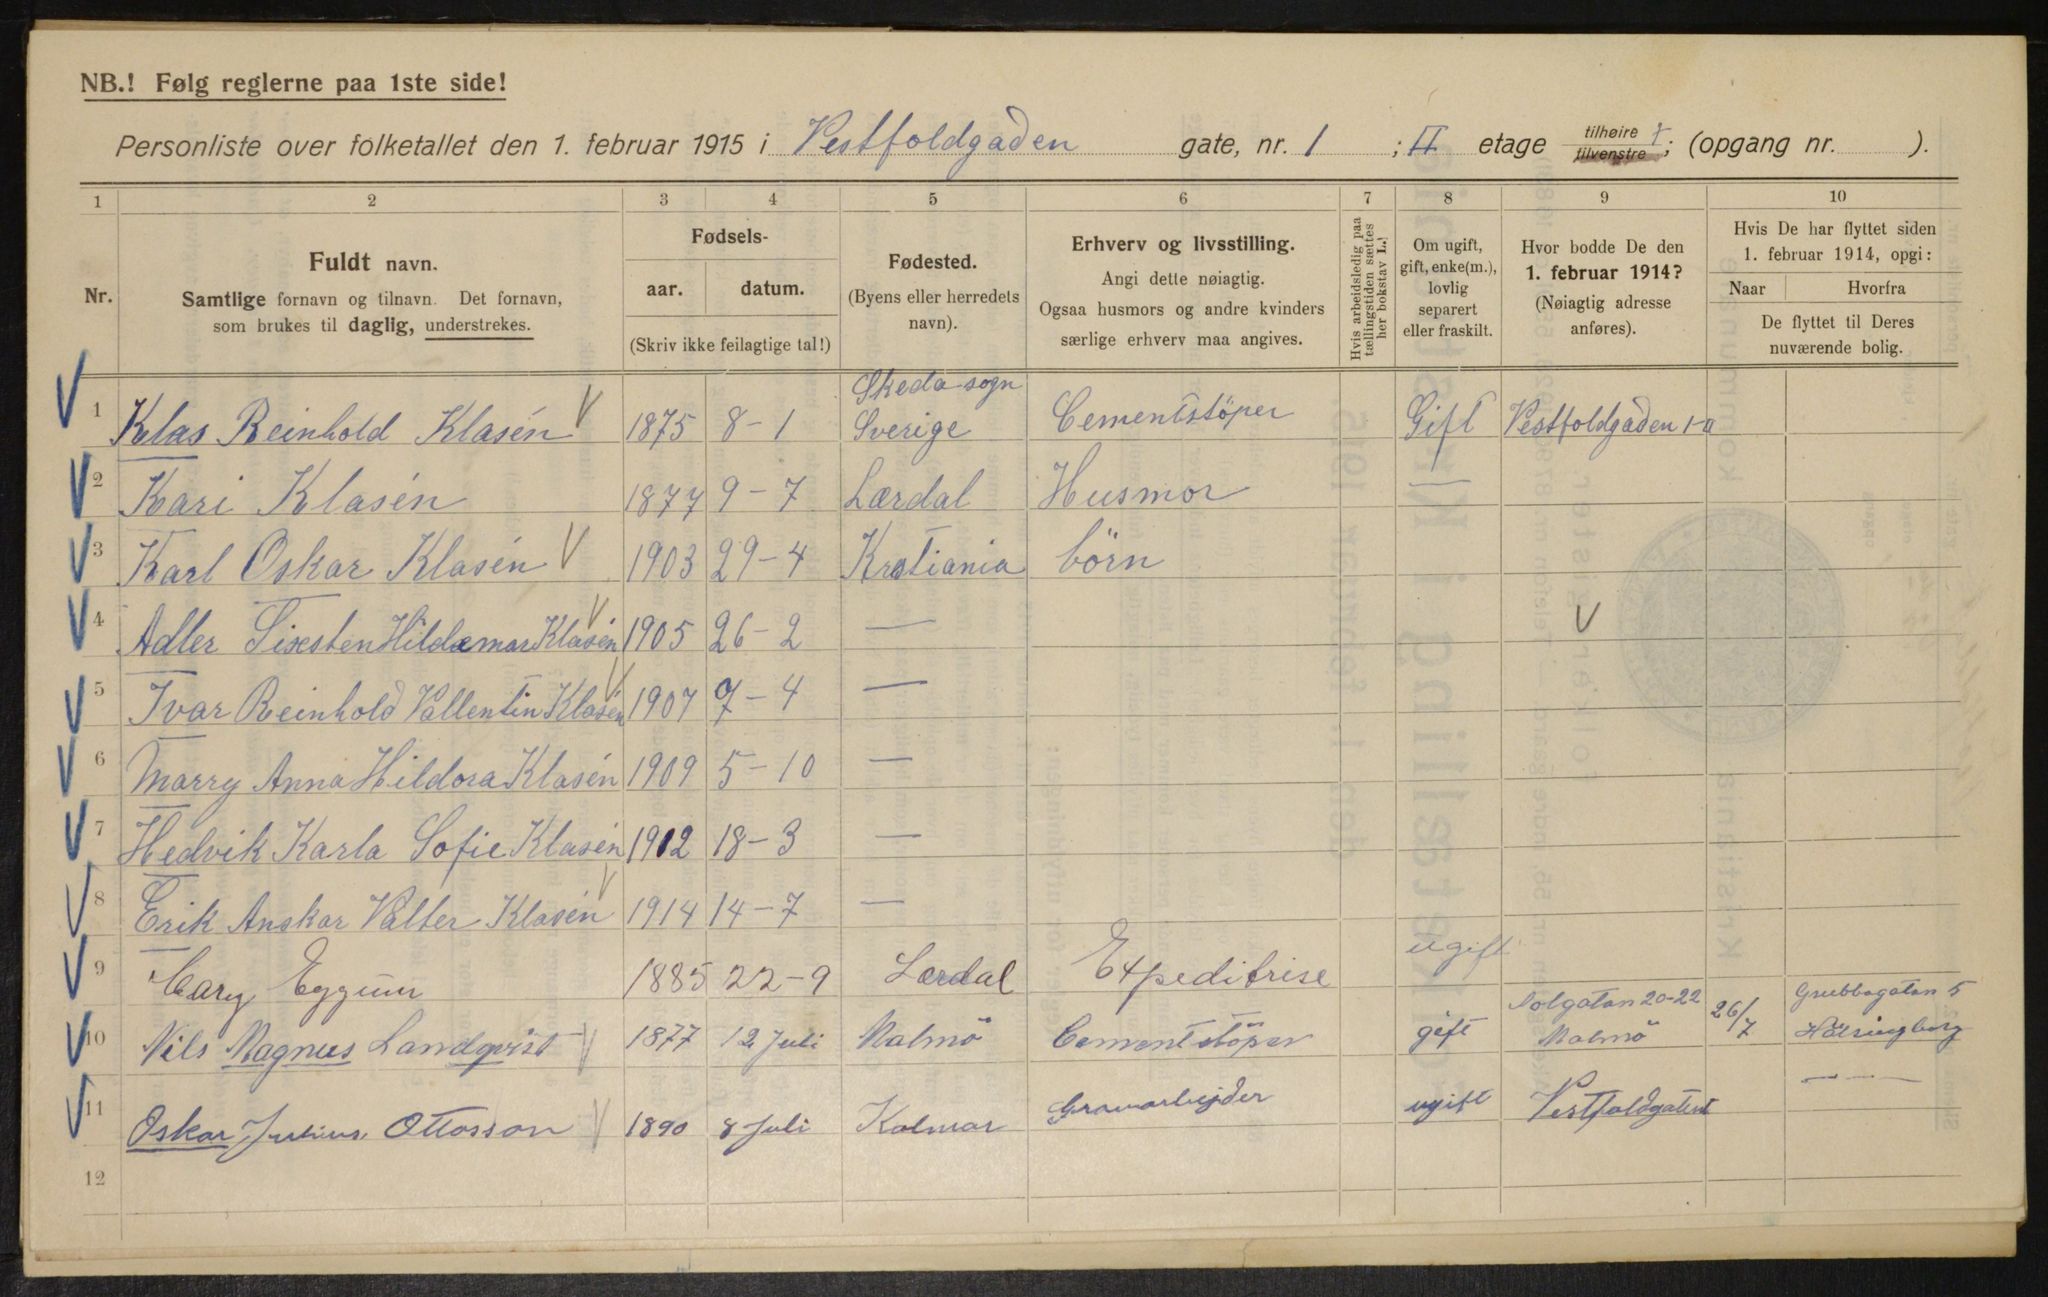 NB.! Følg reglerne paa 1ste side!
Personliste over folketallet den 1. februar 1915 i Vestfoldgaden gate, nr. 1 ; II etage tilhøire / tilvenstre ; (opgang nr. ).
1 2 3 4 5 6 7 8 9 10
Nr.
Fuldt navn.
Samtlige fornavn og tilnavn. Det fornavn,
som brukes til daglig, understrekes.
Fødsels-
aar. datum.
(Skriv ikke feilagtige tal!)
Fødested.
(Byens eller herredets
navn).
Erhverv og livsstilling.
Angi dette nøiagtig.
Ogsaa husmors og andre kvinders
særlige erhverv maa angives.
Hvis arbeidsledig paa
tællingstiden sættes
her bokstav L.
Om ugift,
gift, enke(m.),
lovlig
separert
eller fraskilt.
Hvor bodde De den
1. februar 1914?
(Nøiagtig adresse
anføres).
Hvis De har flyttet siden
1. februar 1914, opgi:
Naar Hvorfra
De flyttet til Deres
nuværende bolig.
1 Klas Reinhold Klasén 1875 8-1 Skeda sogn Sverige Cementstöper Gift Vestfoldgaden 1-II
2 Kari Klasén 1877 9-7 Lærdal Husmor —
3 Karl Oskar Klasén 1903 29-4 Krstiania börn
4 Adler Sixsten Hildemar Klasén 1905 26-2 —
5 Ivar Reinhold Vallentin Klasén 1907 7-4 —
6 Marry Anna Hildora Klasén 1909 5-10 —
7 Hedvik Karla Sofie Klasén 1912 18-3 —
8 Erik Anskar Valter Klasén 1914 14-7 —
9 Cary Eggum 1885 22-9 Lærdal Expeditrise ugift
10 Nils Magnus Landqvist 1877 12 Juli Malmö Cementstöper gift 20-22 Malmö 26/7 Grubbagatan 5 Hälsingborg
11 Oskar Julius Ottosson 1890 8 Juli Kalmar ugift — — —
12